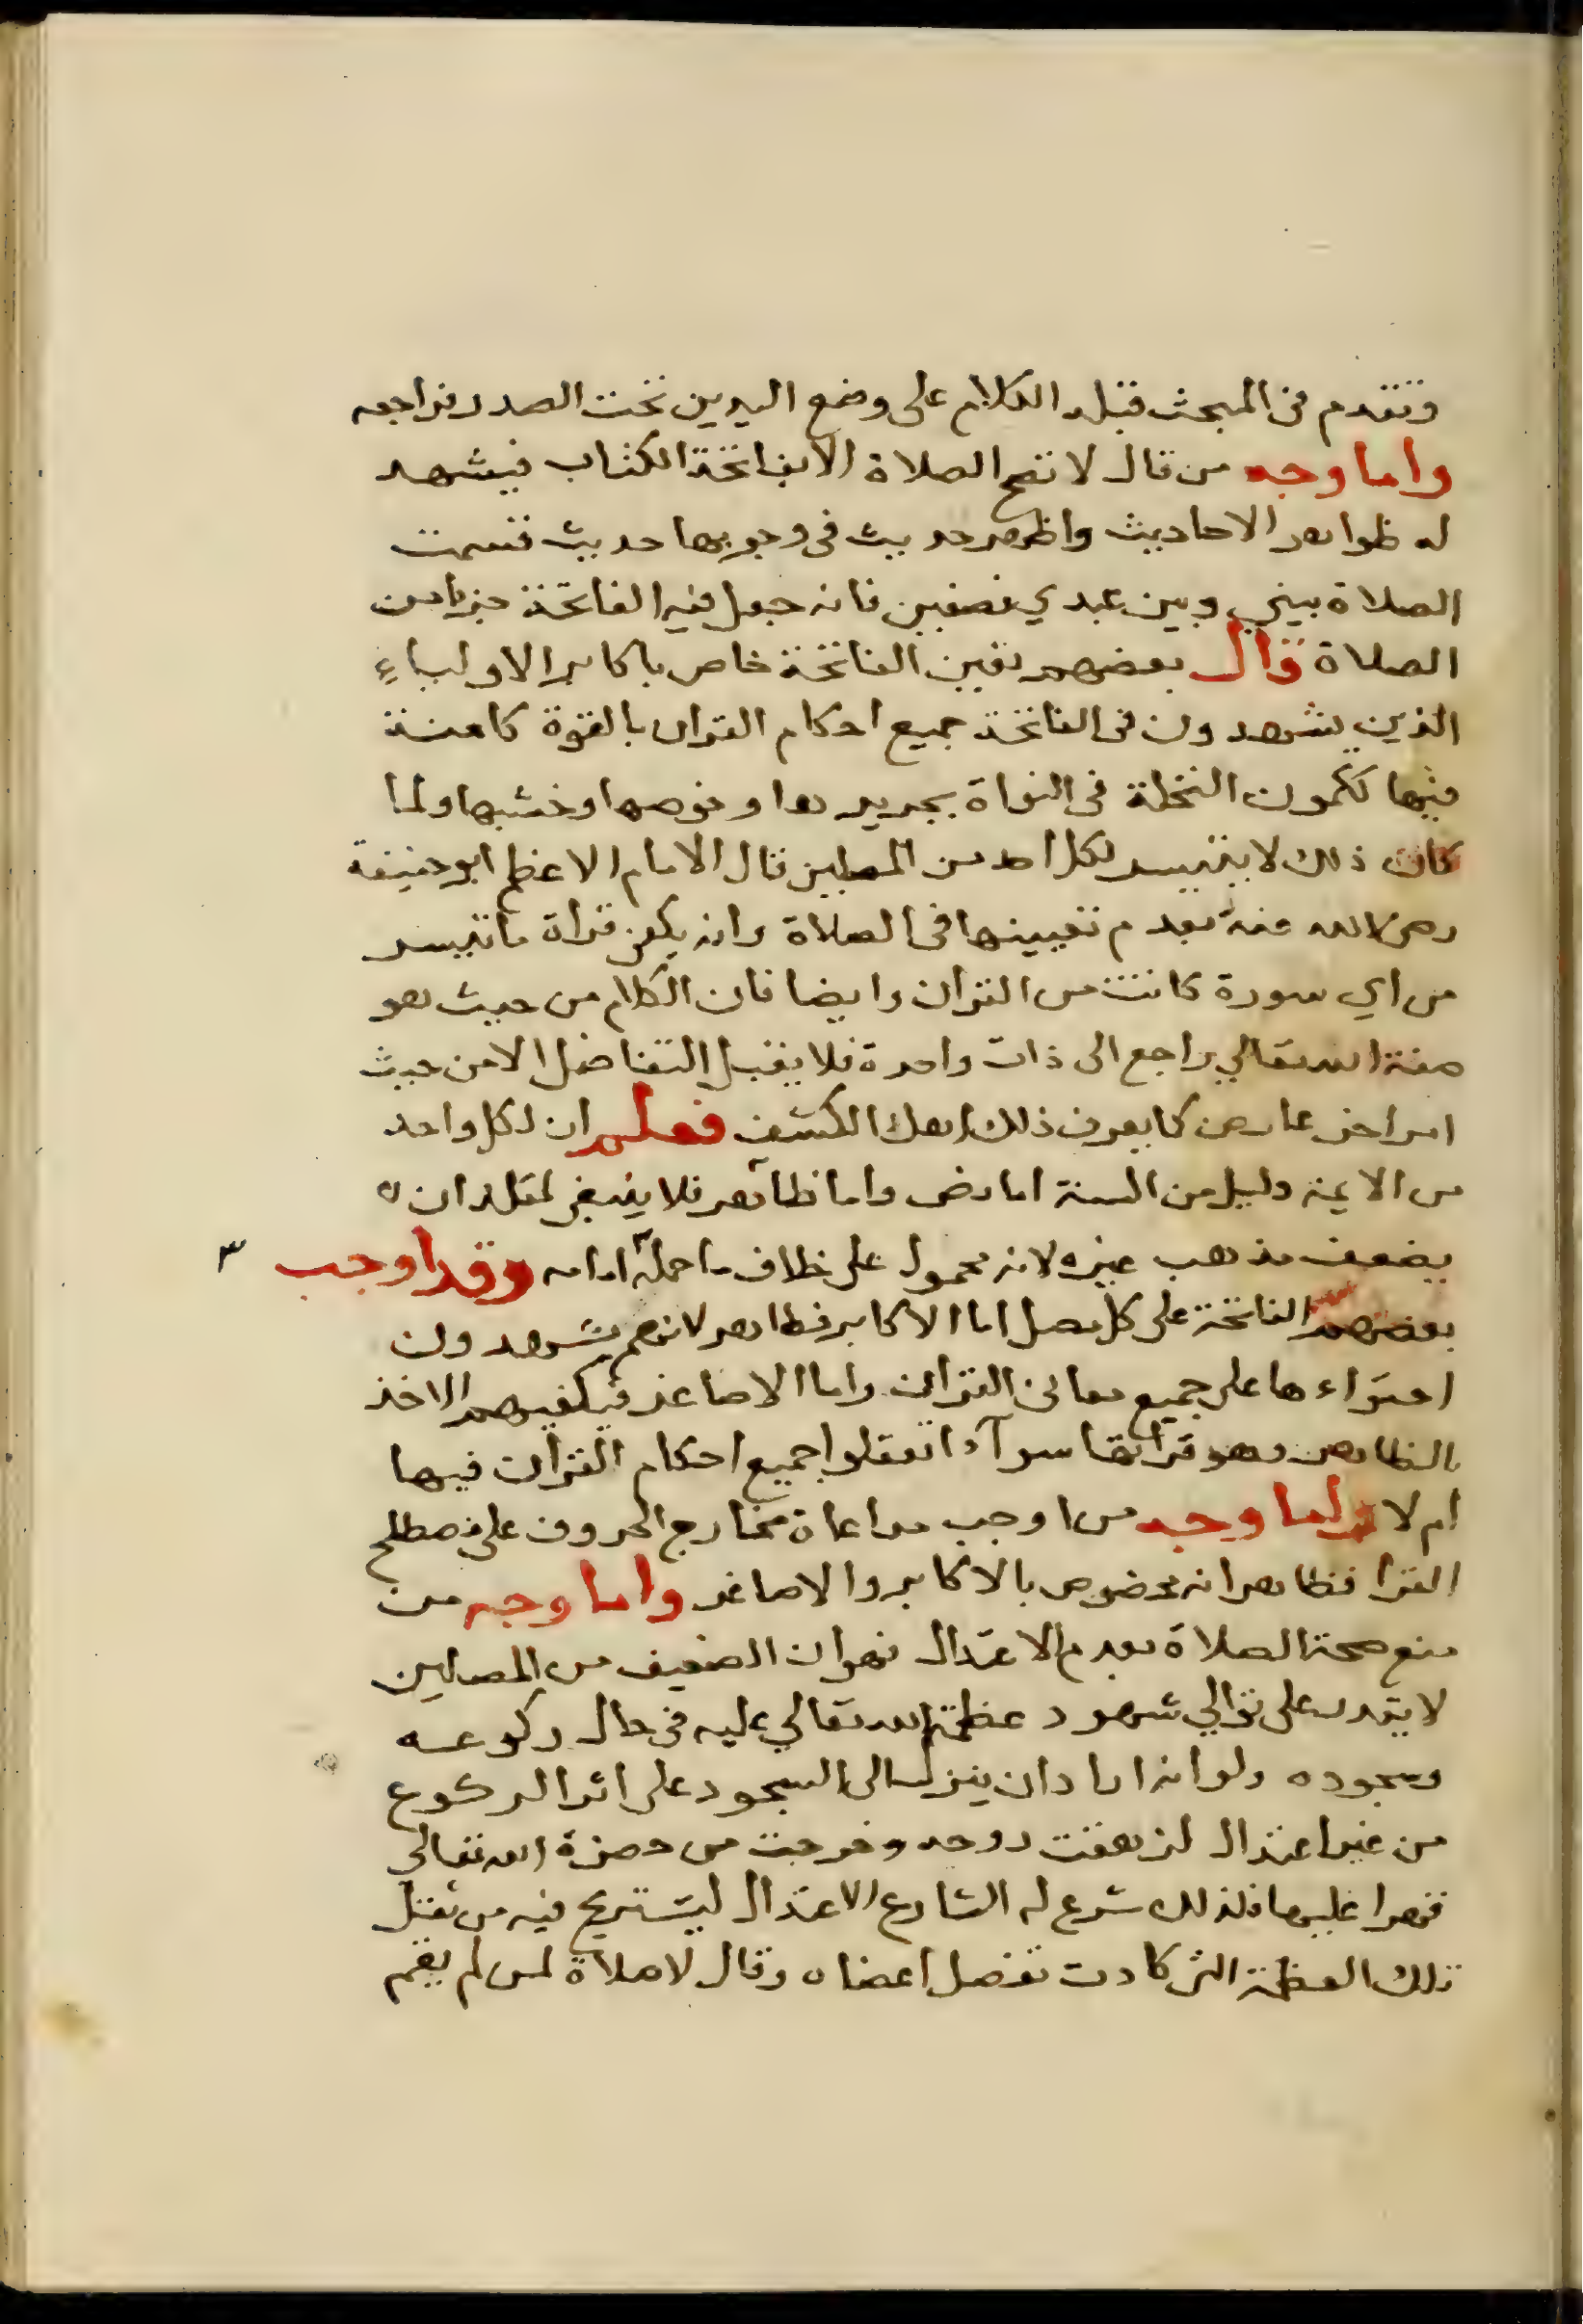 وتقدم فى المبحث قبله الكلام على وضع اليدين تحت الصدر فراجعه
واما وجه من قال لا تصح الصلاة الا بفاتحة الكتاب فيشهد
له ظواهر الاحاديث واظهر حديث فى وجوبها حديث قسمت
الصلاة بيني وبين عبدي نصفين فانه جعل فيه الفاتحة جزءا من
الصلاة قال بعضهم تعين الفاتحة خاص باكابر الاولياءِ
الذين يشهدون فى الفاتحة جميع احكام القران بالقوة كامنة
فيها ككمون النخلة فى النواة بجريدها وخوصها وخشبها ولما
كان ذلك لا يتيسر لكل احد من المصلين قال الامام الاعظم ابو حنيفة
رضى الله عنه بعدم تعيينها فى الصلاة وانه يكفى قراة ما تيسر
من اي سورة كانت من القران وايضا فان الكلام من حيث هو
صفة الله تعالي راجع الى ذات واحدة فلا يقبل التفاضل الا من حيث
امر اخر عارض كما يعرف ذلك اهل الكشف فعلم ان لكل واحد
من الايمة دليل من السنة اما نص واما ظاهر فلا ينبغى لمقلد ان
يضعف مذهب غيره لانه محمول على خلاف ما حمله امامه وقد اوجب ٣
بعضهم الفاتحة على كل مصل اما الاكابر فظاهر لانهم يشهدون
احتواءها على جميع معانى القران واما الاصاغر فيكفيهم الاخذ
بالظاهر وهو قراتها سوآء اتعقلوا جميع احكام القرآن فيها
ام لا واما وجه من اوجب مراعاة مخارج الحروف على مصطلح
القرا فظاهر انه مخصوص بالاكابر والاصاغر واما وجه من
منع صحة الصلاة بعدم الاعتدال فهو ان الضعيف من المصلين
لا يقدر على توالي شهود عظمة الله تعالي عليه فى حال ركوعه
وسجوده ولو انه اراد ان ينزل الى السجود على اثر الركوع
من غير اعتدال لزهقت روحه وخرجت من حضرة الله تعالي
قهرا عليها فلذلك شرع له الشارع الاعتدال ليستريح فيه من ثقل
تلك العظمة التى كادت تفصل اعضاه وقال لا صلاة لمن لم يقم